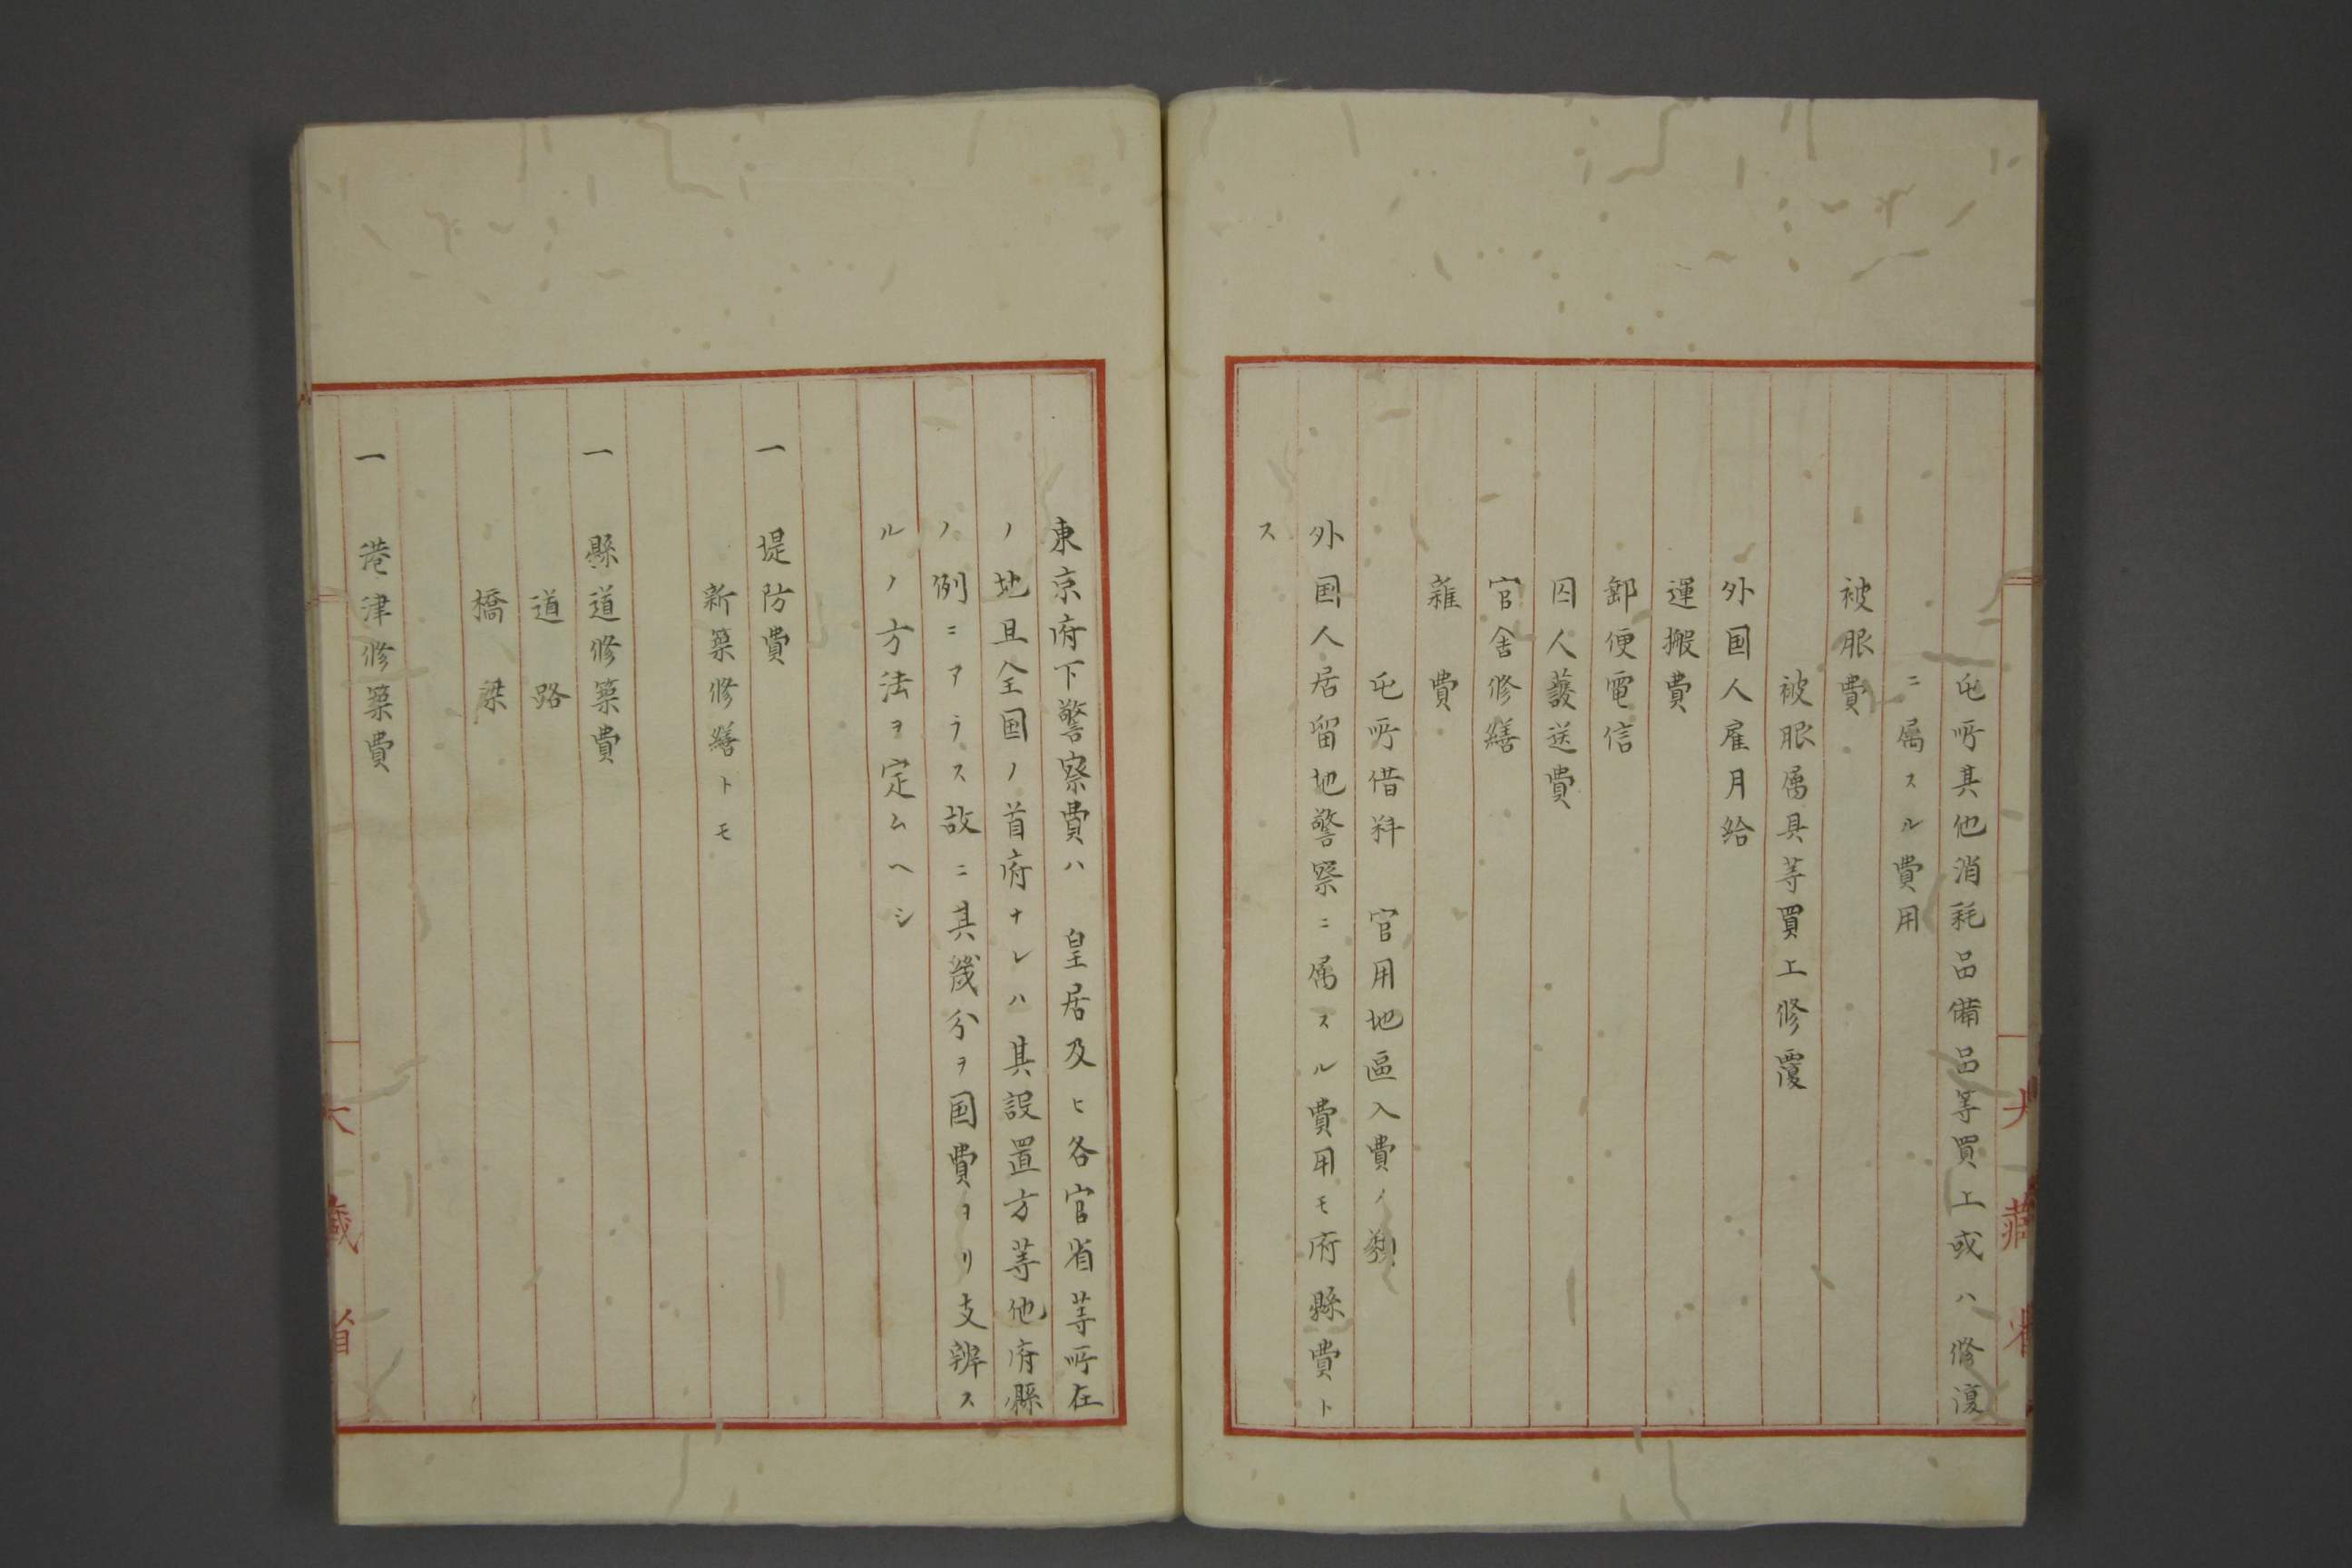 屯所其他消耗品備品等買上或ハ修復
ニ属スル費用
被服費
被服属具等買上修覆
外国人雇月給
運搬費
郵便電信
囚人護送費
官舎修繕
雑費
屯所借料　官用地區入費ノ類
外国人居留地警察ニ属スル費用モ府縣費ト
ス
東京府下警察費ハ　皇居及ヒ各官省等所在
ノ地且全国ノ首府ナレハ其設置方等他府縣
ノ例ニアラス故ニ其幾分ヲ国費ヨリ支辨ス
ルノ方法ヲ定ムヘシ
一　堤防費
新築修繕トモ
一　縣道修築費
道路
橋梁
一　港津修築費
大藏省
大藏省